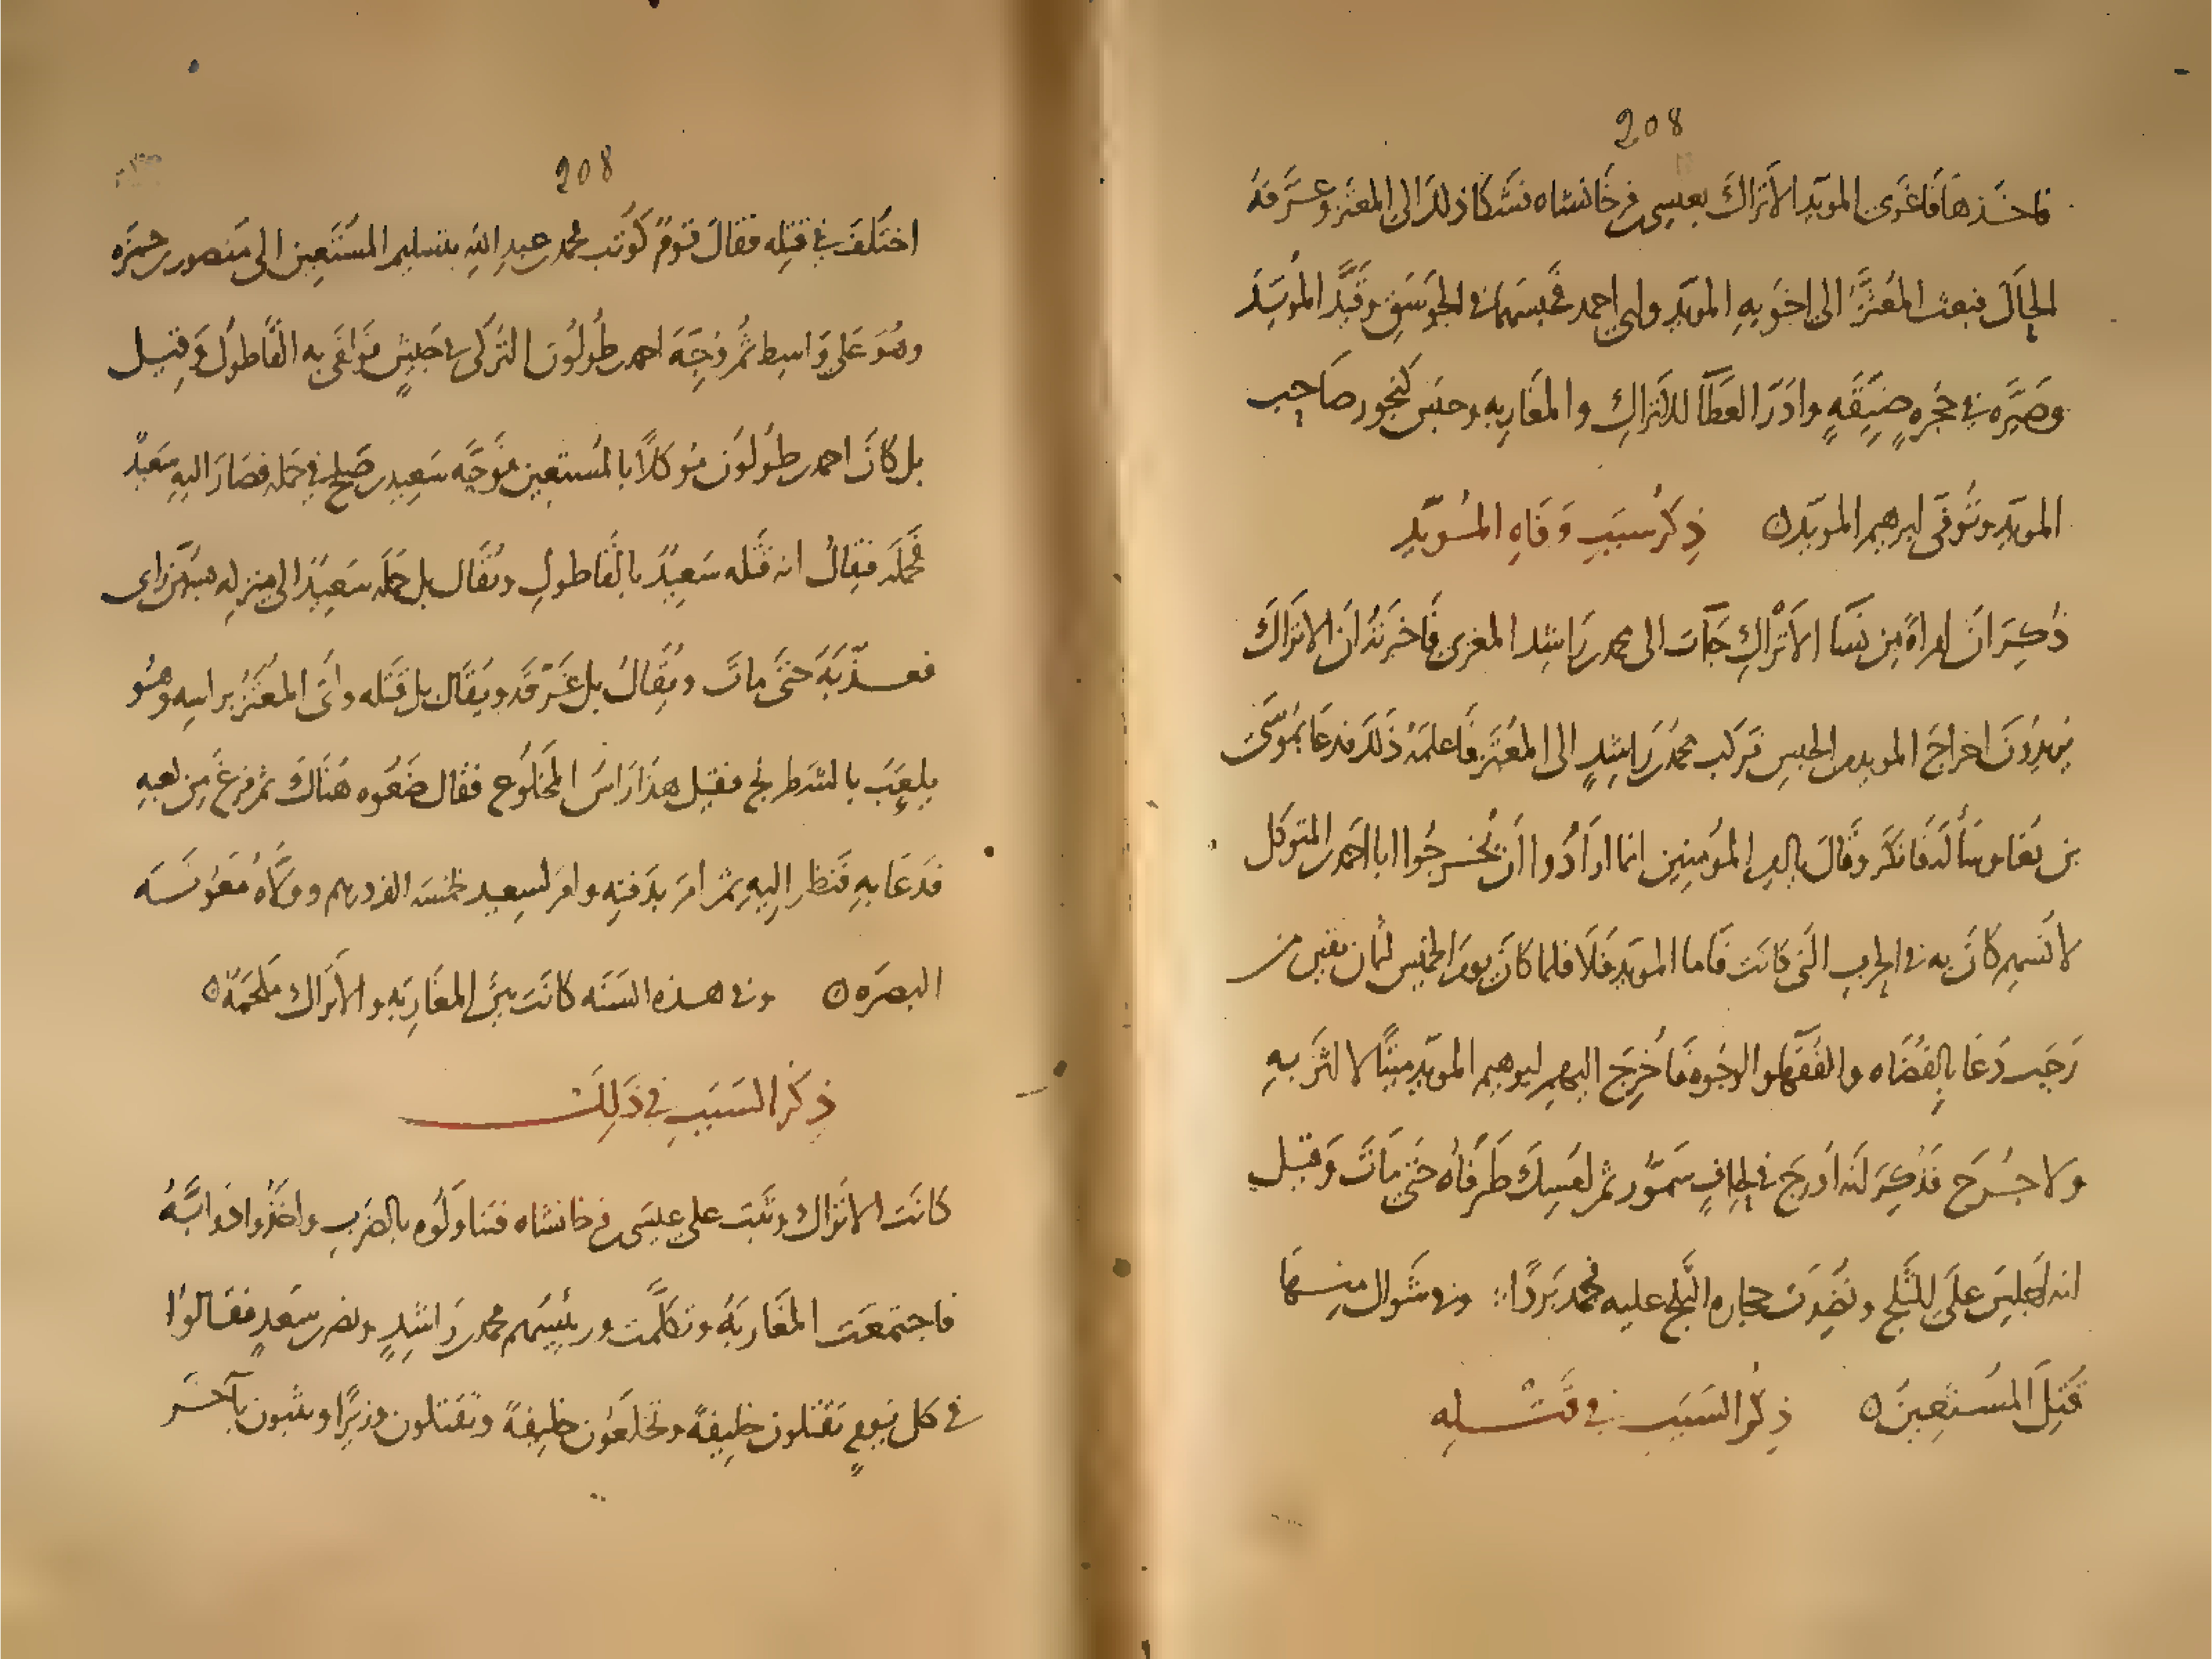 208
فاخذها فاغرى المويد الاتراك بعيسى بن فرخانشاه فشكا ذلك الى المعتز وعرفه
الحال فبعث المعتز الى اخويه المويد وابى احمد فحبسهما فى الجوسق وقيد المويد
وصيره فى حجره ضيقه وادر العطا للاتراك والمغاربه وحبس كنجور صاحب
المويد وتوفى ابرهيم المويد ه ذكر سبب وفاه المويد
ذكر ان امراة من نسا الاتراك جات الى محمد بن راشد المغربى فاخبرته ان الاتراك
يريدون اخراج المويد من الحبس فركب محمد بن راشد الى المعتز فاعلمه ذلك فدعا بموسى
بن بغا وساله فانكر وقال يامير المؤمنين انما ارادوا ان يخرجوا ابا احمد بن المتوكل
لانسهم كان به فى الحرب التى كانت فاما المويد فلا فلما كان يوم الخميس لثمان بقين من
رجب دعا بالقضاه والفقها والوجوه فاخرج اليهم ابرهيم المويد ميتا لا اثر به
ولا جرح فذكر انه ادرج فى لحاف سمور ثم امسك طرفاه حتى مات وقيل
انه اجلس على الثلج ونضدت حجاره الثلج عليه فجمد بردا وفى شوال منها
قتل المستعين ه ذكر السبب فى قتله
208
اختلف فى قتله فقال قوم كوتب محمد بن عبد الله بتسليم المستعين الى منصور بن حمزه
وهو على واسط ثم وجه احمد بن طولون التركى فى جيش فوافى به القاطول وقيل
بل كان احمد بن طولون موكلا بالمستعين فوجه سعيد بن صلح فى حمله فصار اليه سعيد
فحمله فيقال انه قتله سعيد بالقاطول ويقال بل حمله سعيد الى منزله بسر من راى
فعذبه حتى مات ويقال بل غرقه ويقال بل قتله واتى المعتز براسه وهو
يلعب بالشطرنج فقيل هذا راس المخلوع فقال ضعوه هناك ثم فرغ من لعبه
فدعا به فنظر اليه ثم امر بدفنه وامر لسعيد بخمسه الف درهم وولاه معونه
البصره ه وفى هذه السنه كانت بين المغاربه والاتراك ملحمة ه
ذكر السبب فى ذلك
كانت الاتراك وثبت على عيسى بن فرخانشاه فتناولوه بالضرب واخذوا دوابه
فاجتمعت المغاربه وتكلمت ورئيسهم محمد بن راشد ونصر بن سعد فقالوا
فى كل يوم تقتلون خليفة وتخلعون خليفة وتقتلون وزيرا وتثبون باخر